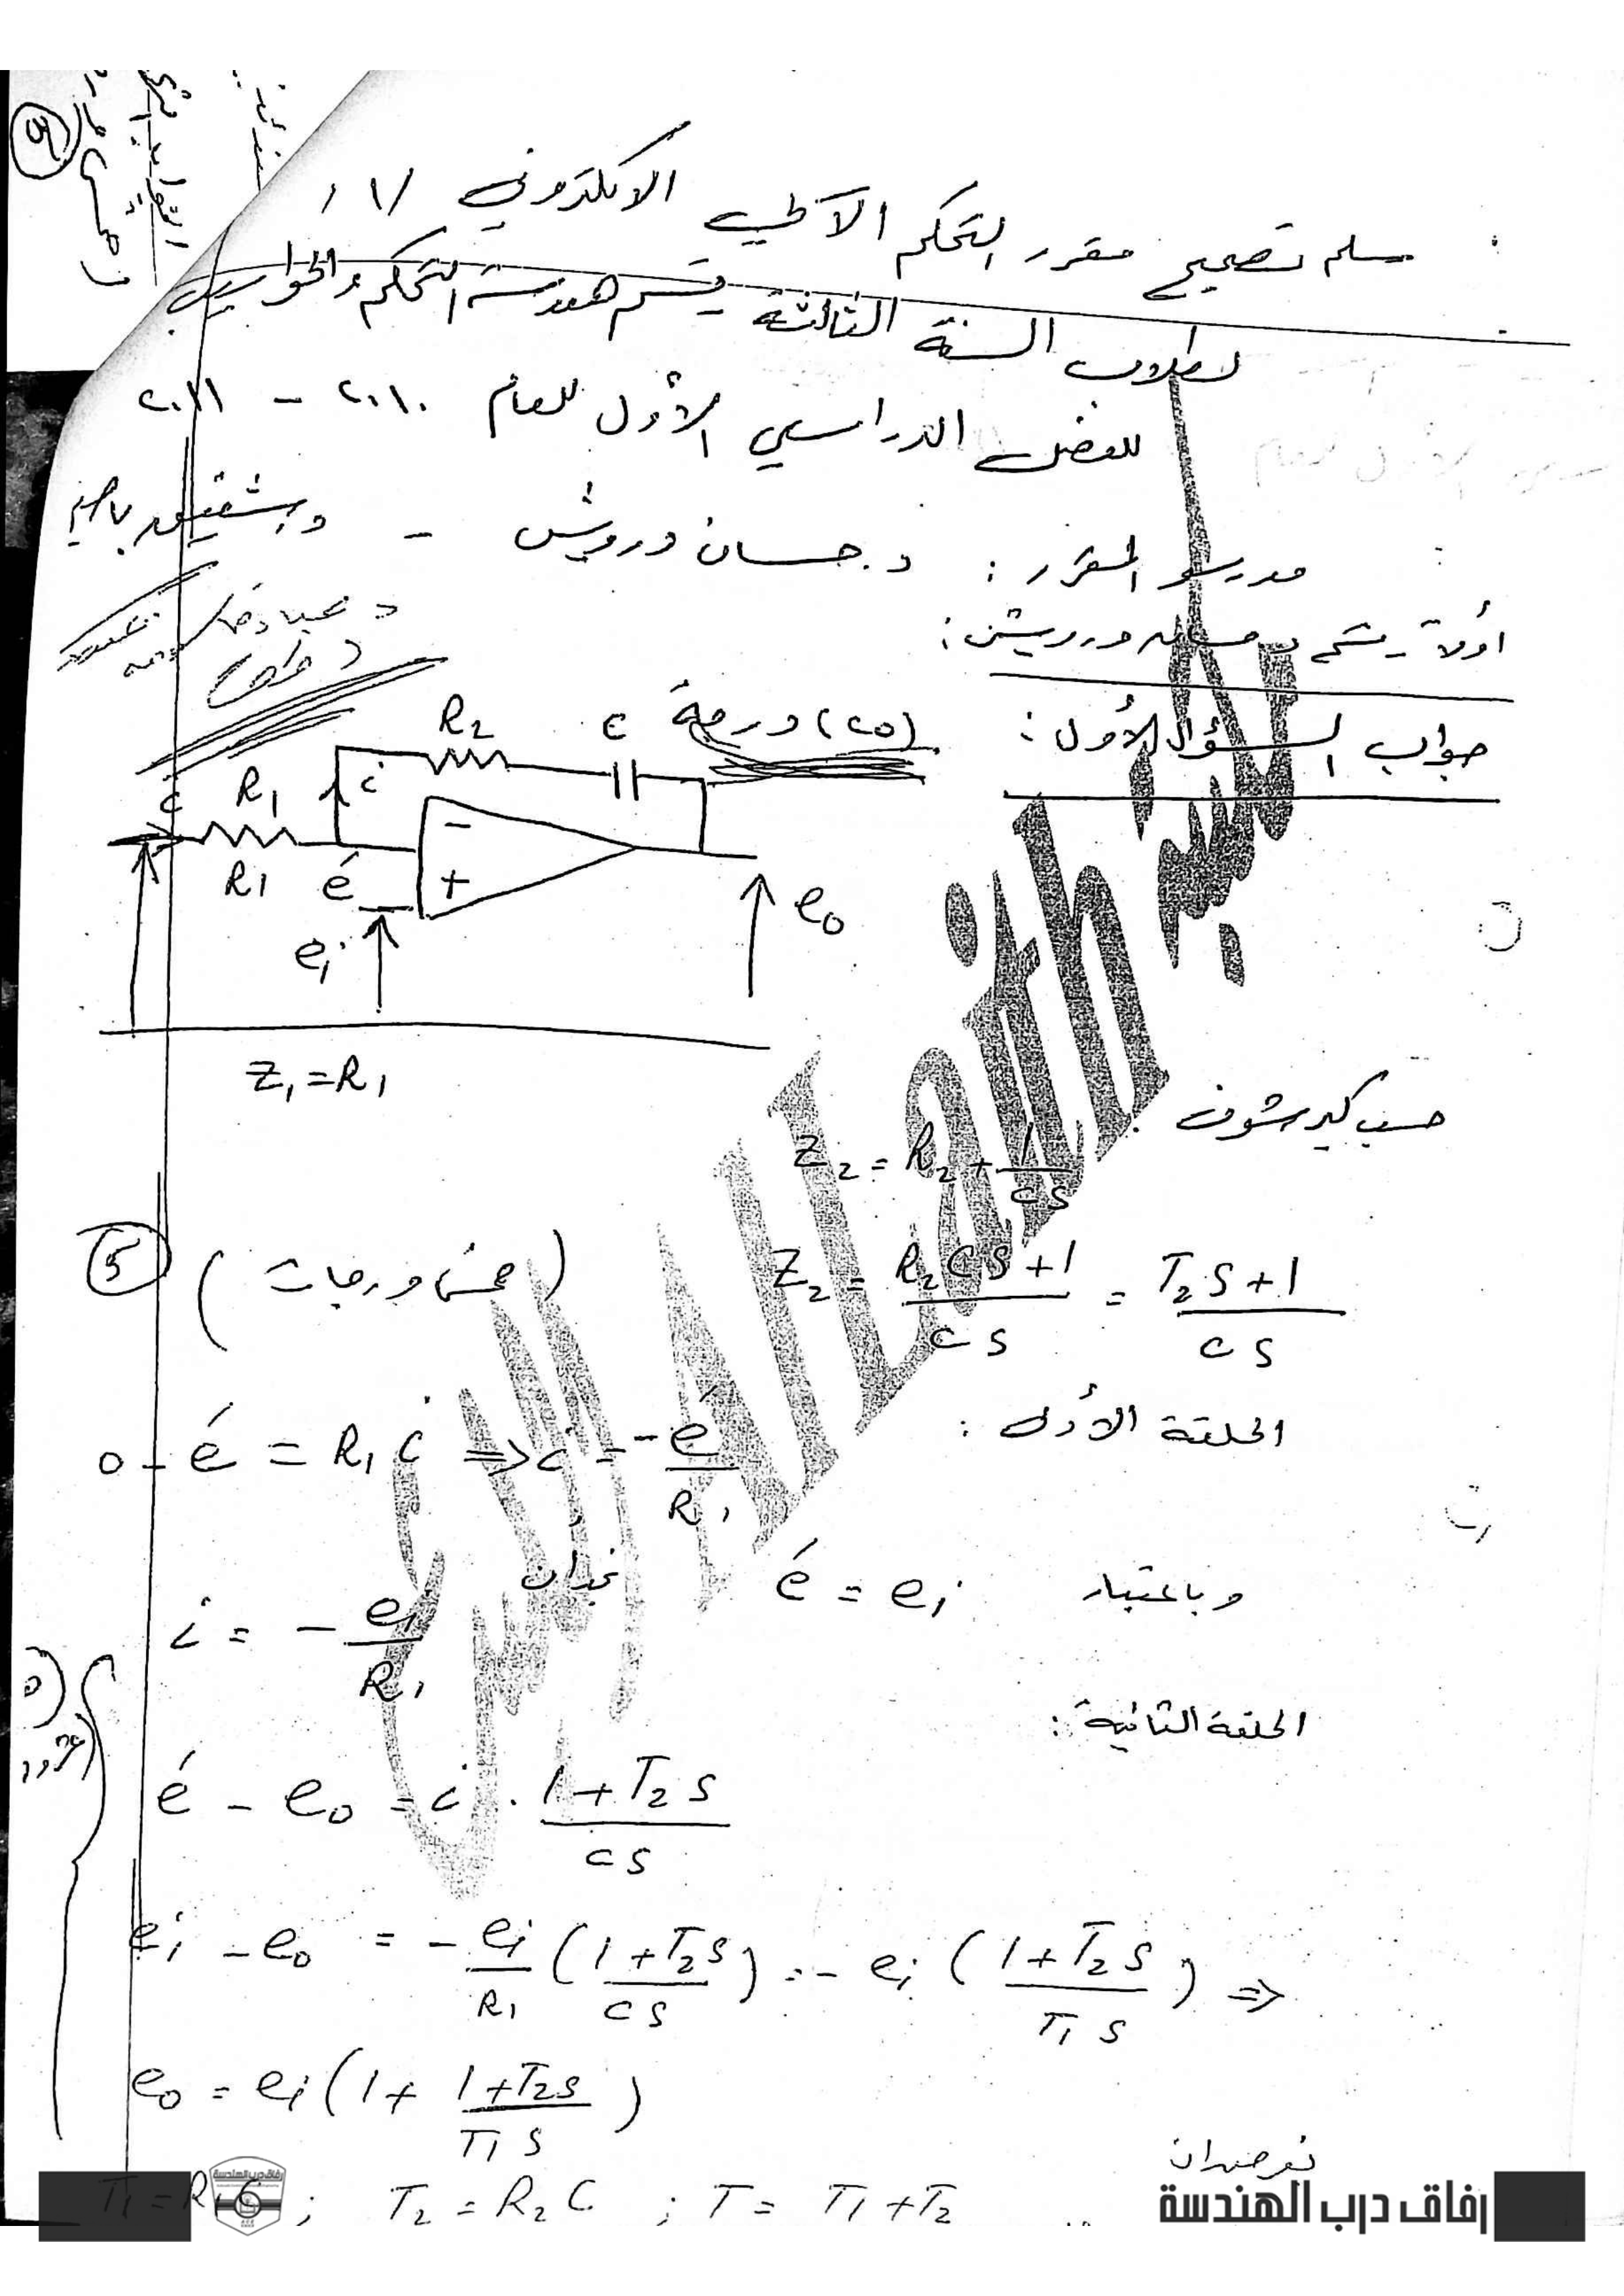 سلم تصحيح مقرر التحكم الآلي الالكتروني /١/
لطلاب السنة الثالثة قسم هندسة التحكم والحواسيب
للفصل الدراسي الأول للعام ٢٠١٠ - ٢٠١١
مدرسو المقرر : د.حسان درويش -
أولاً قسم د حسان درويش :
جواب السؤال الأول : (٢٥) درجة
R2 c
i R1 i
R1 é
- +
ei eo
Z1 = R1
حسب كيرشوف
Z2 = R2 + 1/cs
Z2 = (R2CS+1)/cs = (T2S+1)/cs
(خمس درجات) 5
الحلقة الأولى :
0 - é = R1 i ⇒ i = -é/R1
وباعتبار é = ei نجد ان
i = -ei/R1
الحلقة الثانية :
é - eo = i . (1+T2S)/cs
ei - eo = -ei/R1 ((1+T2S)/cs) = -ei ((1+T2S)/T1S) ⇒
eo = ei (1 + (1+T2S)/T1S)
نفرض ان
T1 = R1C ; T2 = R2C ; T = T1+T2
رفاق درب الهندسة